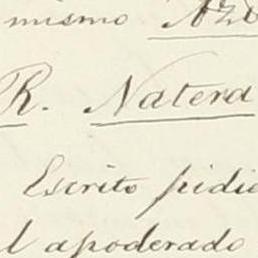 mismo
R. Natera
Escrito pidie
l apoderado